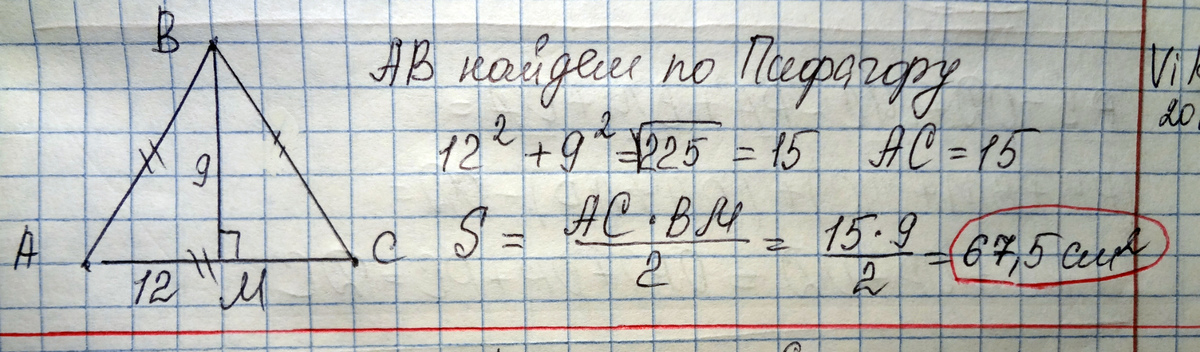 B
AB найдем по Пифагору
12² + 9² = √225 = 15 AC = 15
9
S = AC · BM / 2 = 15 · 9 / 2 = 67,5 см²
A
C
12
M